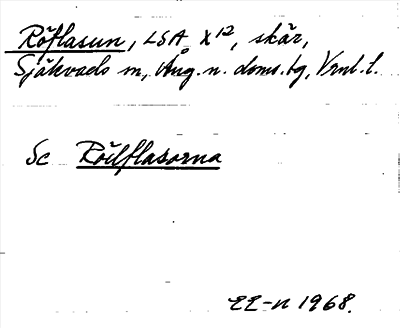 Röflasun, LSA X12, skär,
Själevads m, Ång. n. doms.tg, Vrnl. l.
Sc Röilflasarna
EE-n 1968.